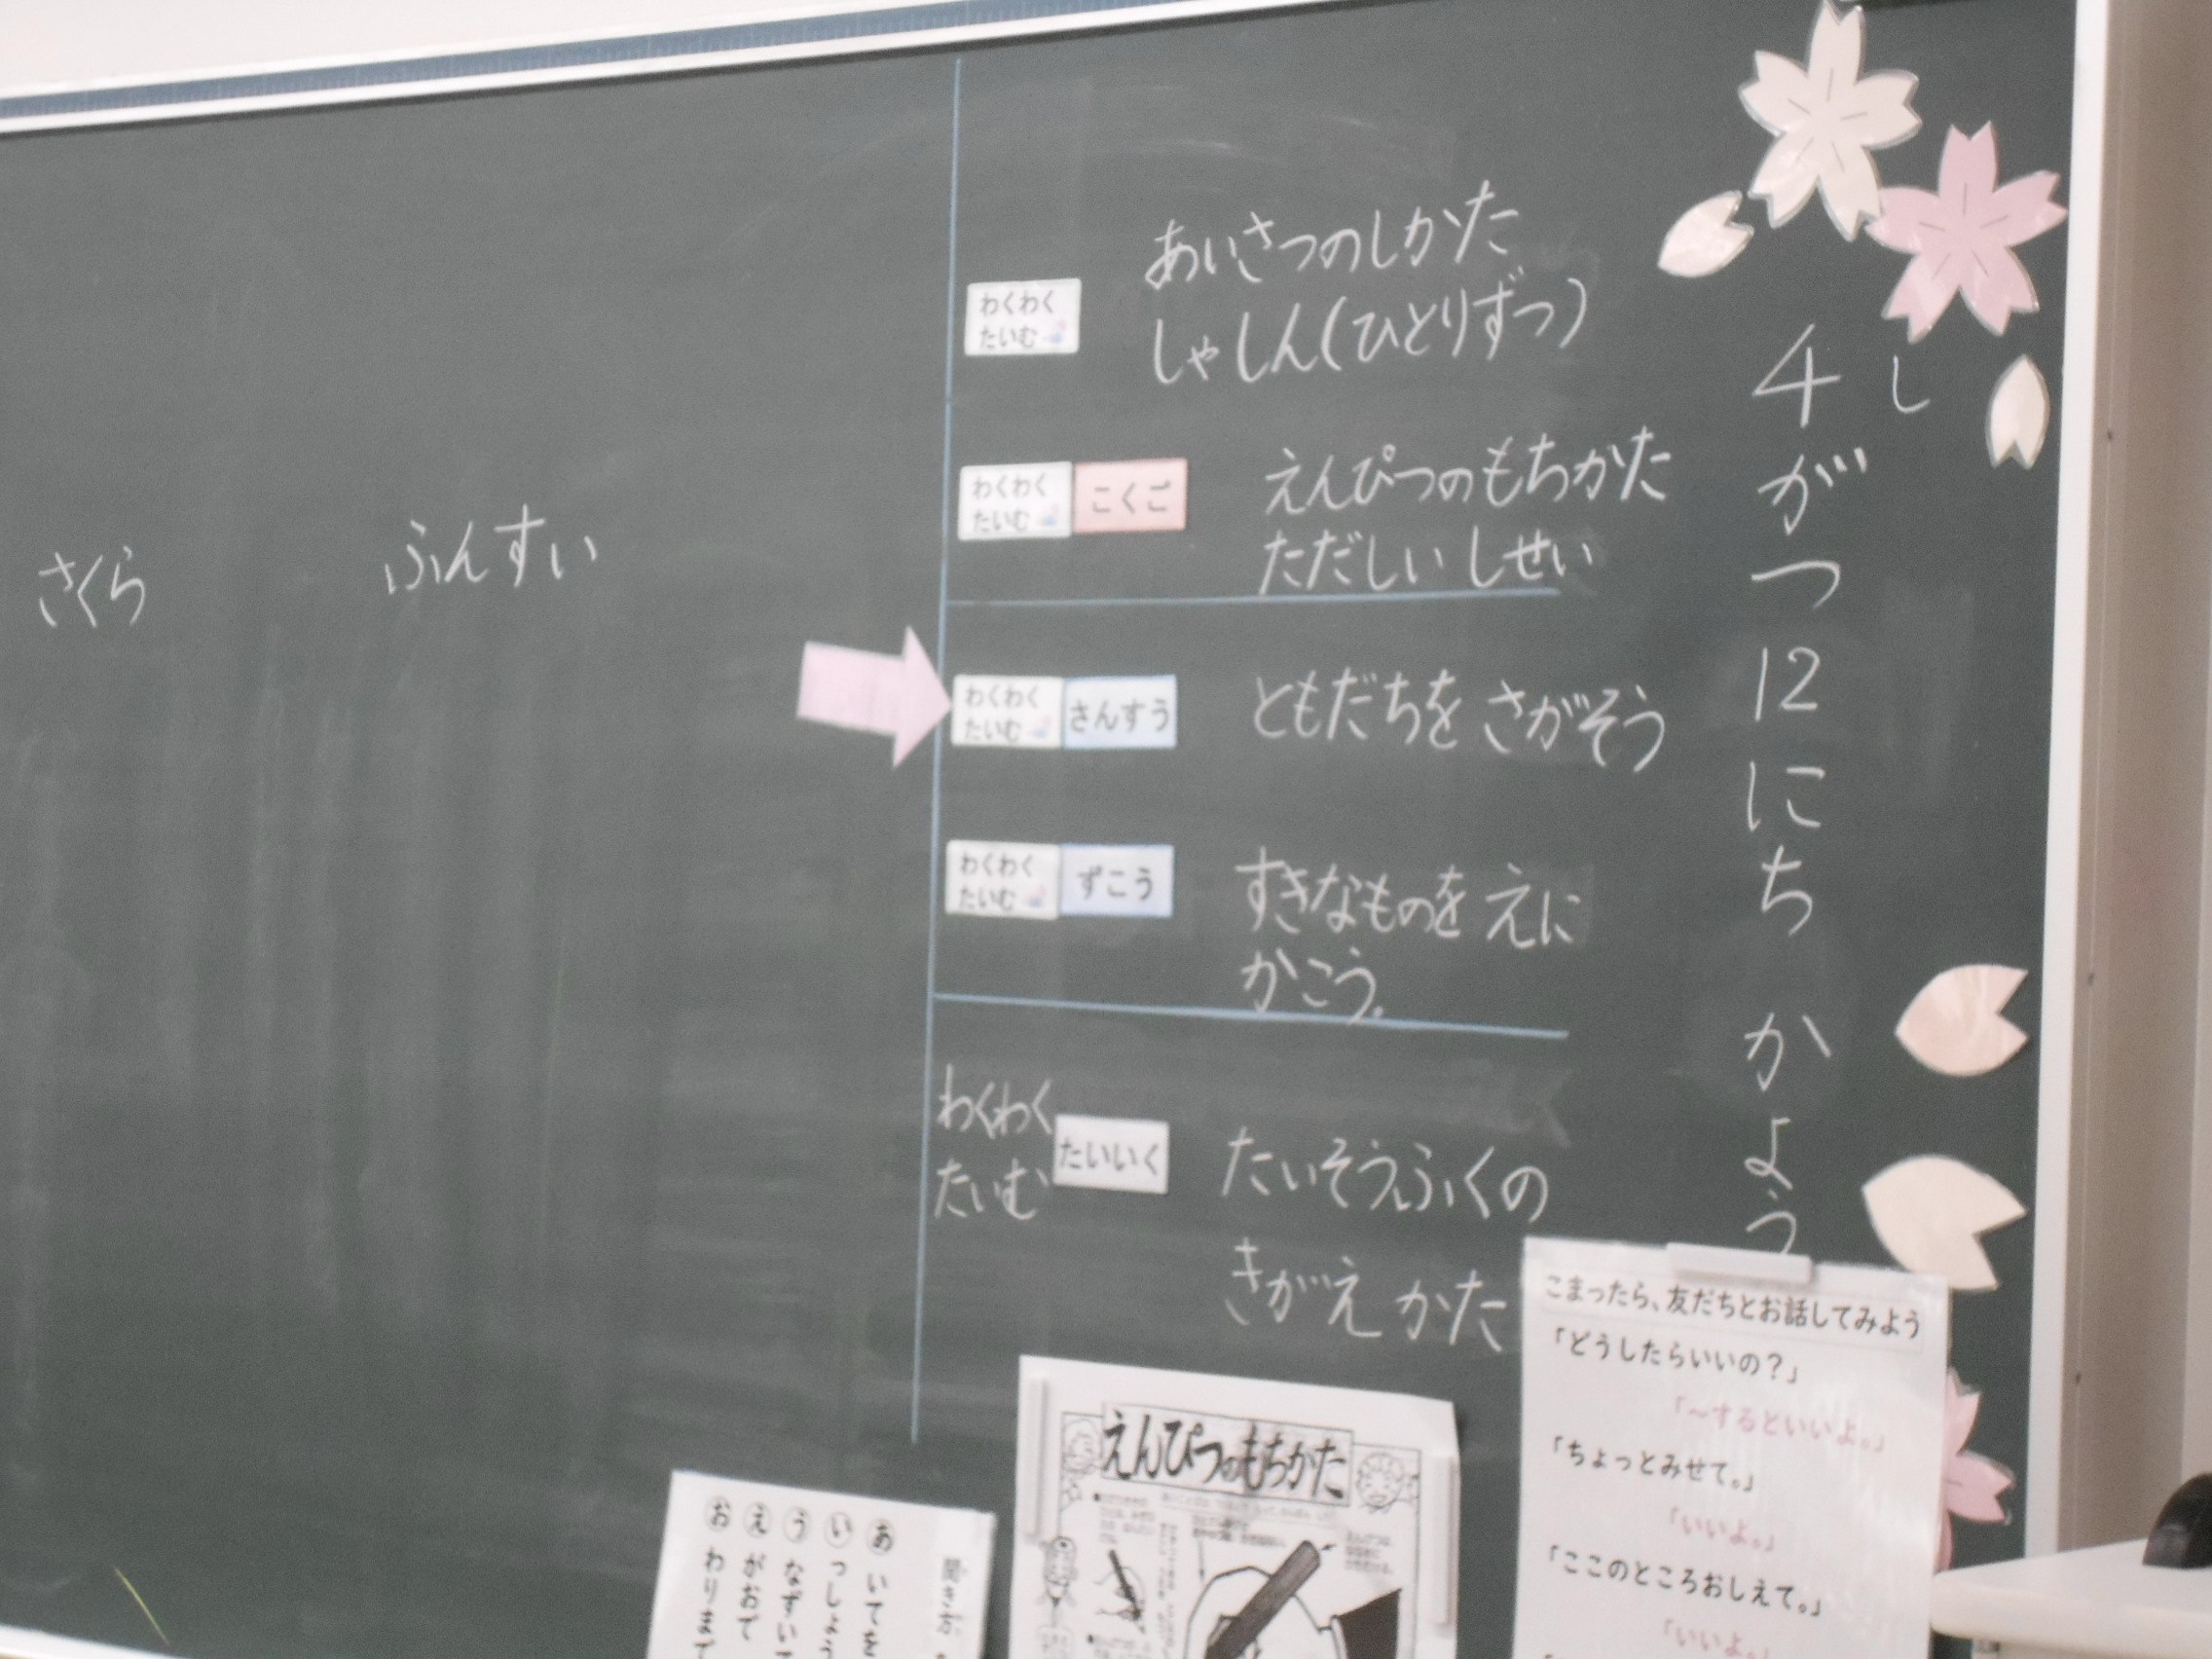 し
4がつ12にち かよう
わくわく
たいむ
あいさつのしかた
しゃしん(ひとりずつ)
わくわく
たいむ
こくご
えんぴつのもちかた
ただしい しせい
わくわく
たいむ
さんすう
ともだちを さがそう
わくわく
たいむ
ずこう
すきなものを えに
かこう。
わくわく
たいむ
たいいく
たいそうふくの
きがえ かた
ふんすい
さくら
こまったら、友だちとお話してみよう
「どうしたらいいの?」
「~するといいよ。」
「ちょっとみせて。」
「いいよ。」
「ここのところおしえて。」
「いいよ。」
えんぴつのもちかた
聞き方
あいてを
いっしょう
うなずいて
えがおで
おわりまで